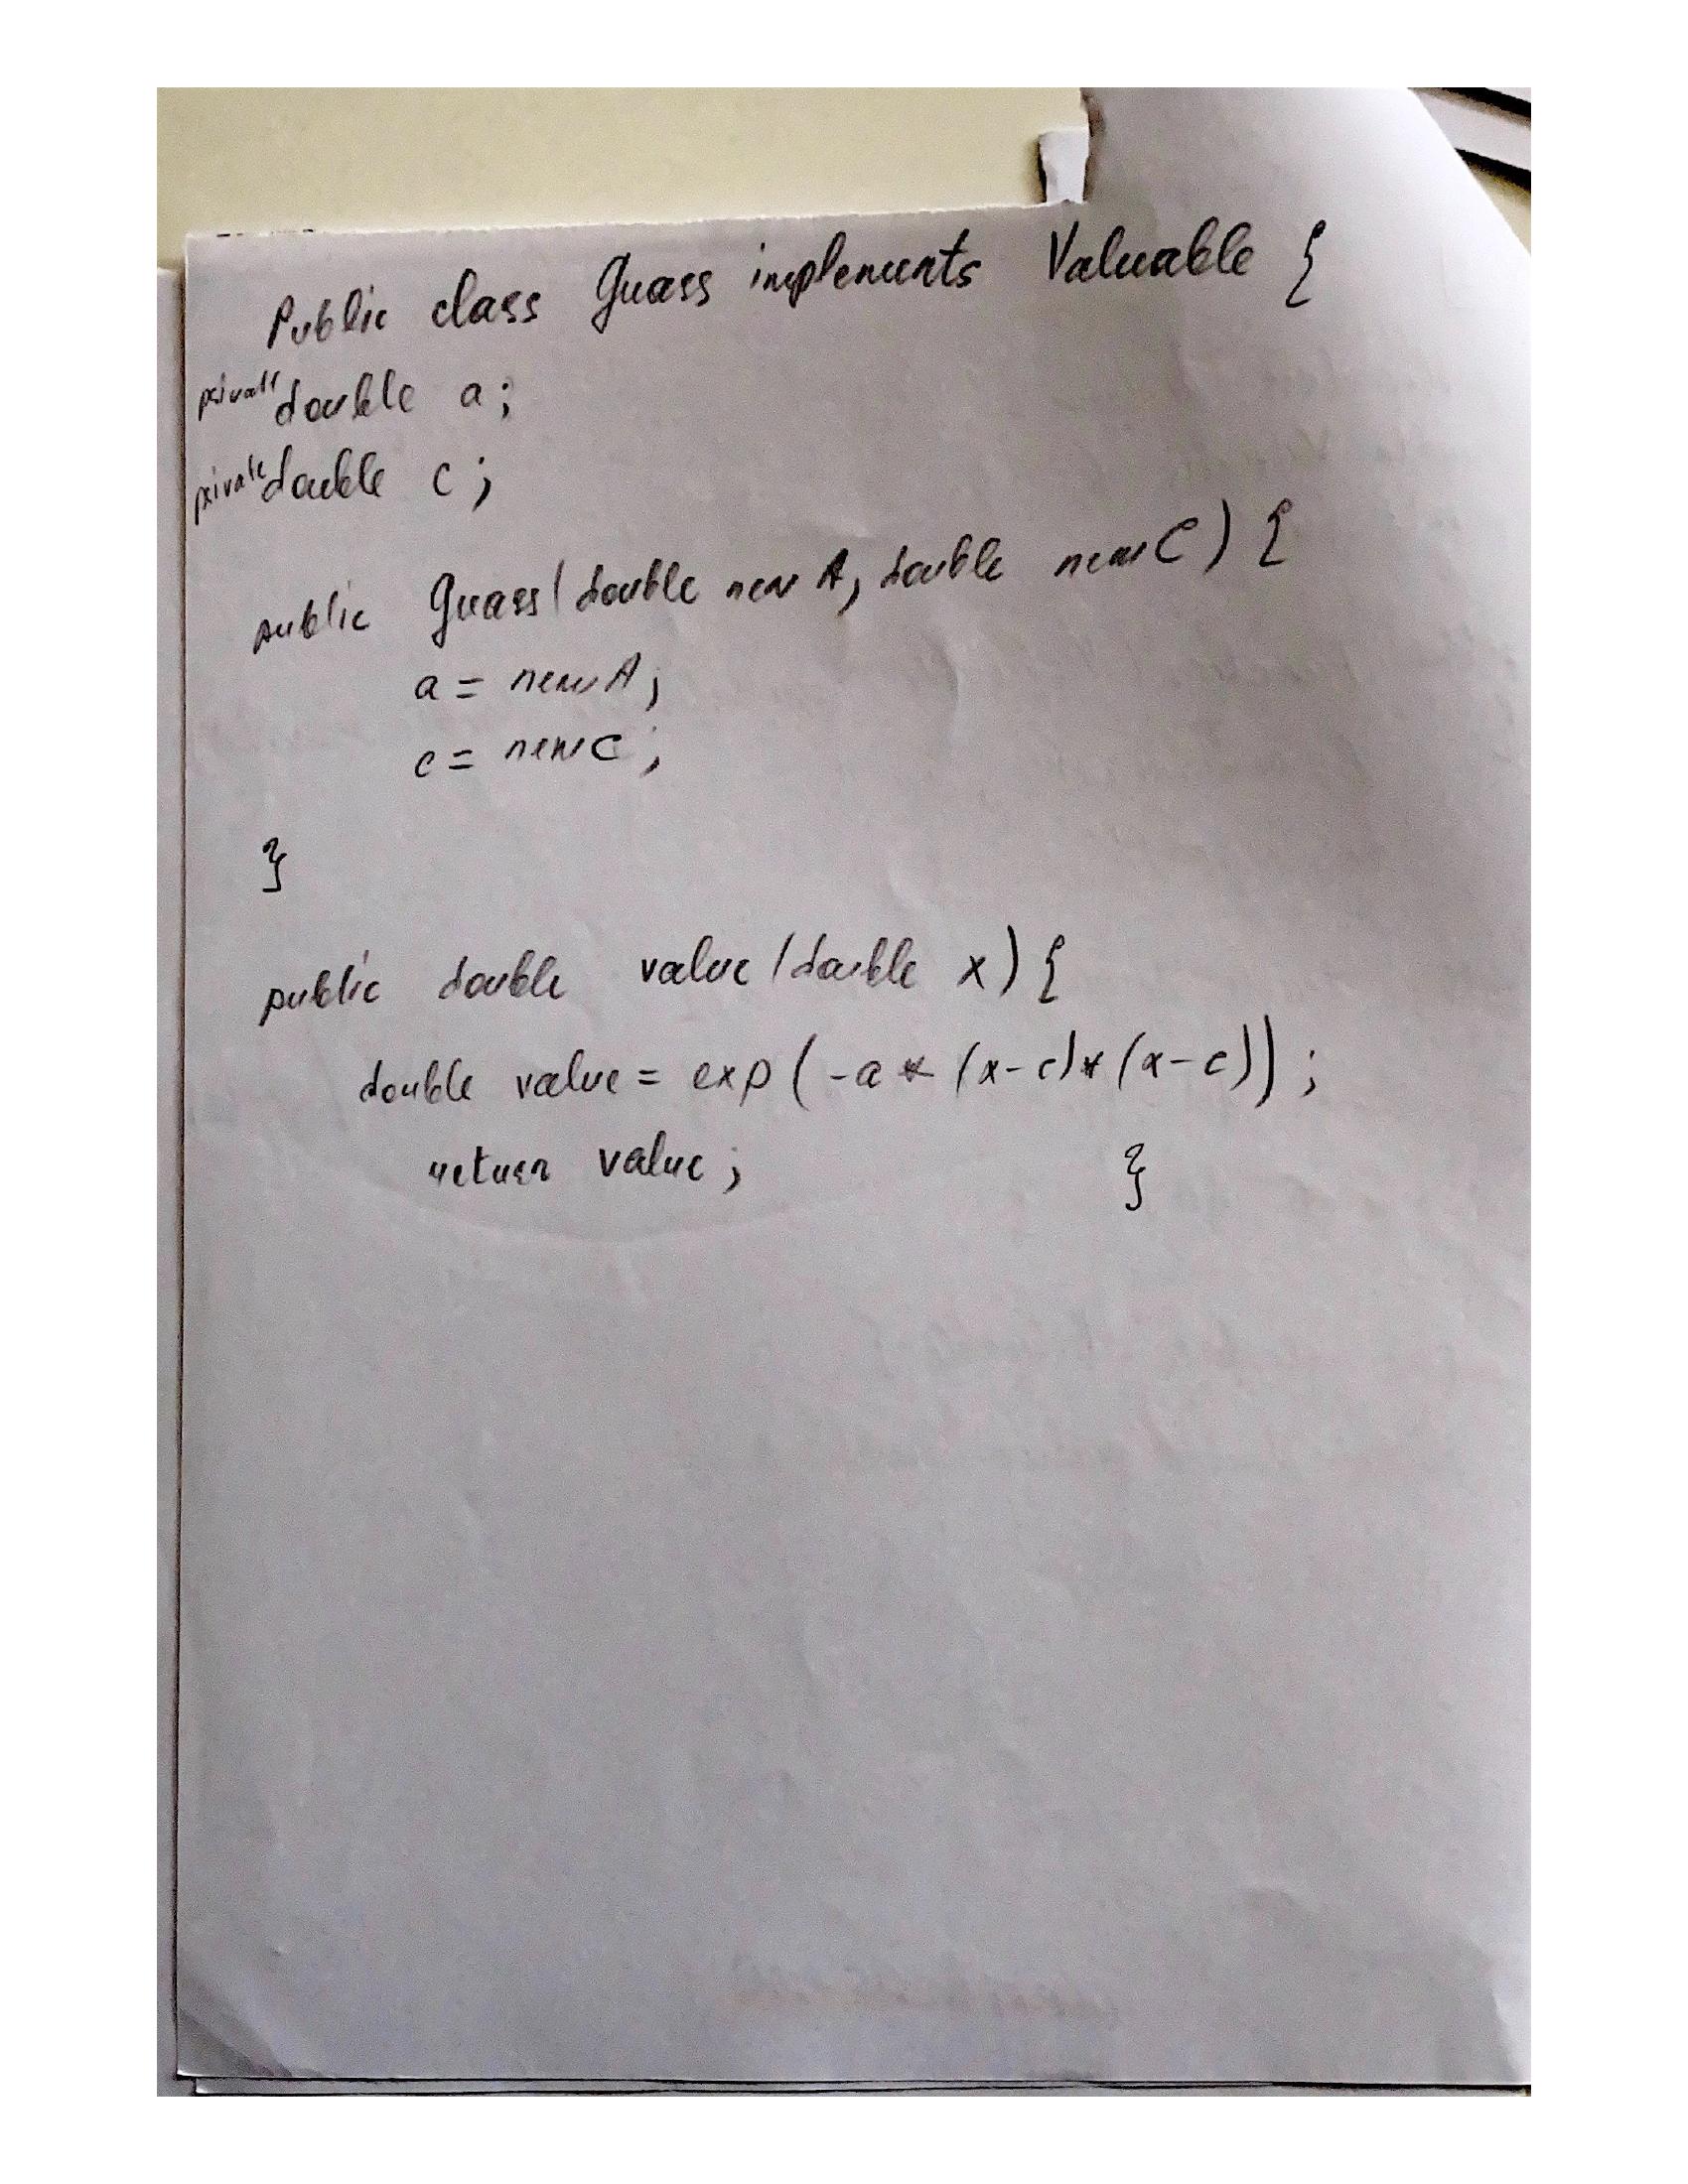 Public class Guass implements Valuable {
private double a;
private double c;
public Guass(double newA, double newC) {
a = newA;
c = newC;
}
public double value(double x) {
double value = exp(-a * (x-c)*(x-c));
return value; }